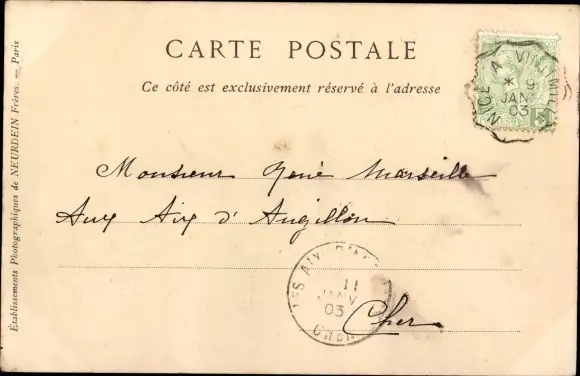 CARTE POSTALE
Ce côté est exclusivement réservé à l'adresse
NICE A VINTIMILLE
* 9
JANV
03
Monsieur René Marseille
Aux Aix d'Angillon
LES AIX-D'AN
11
JANV
03
CHER
Cher
Établissements Photographiques de NEURDEIN Frères. — Paris